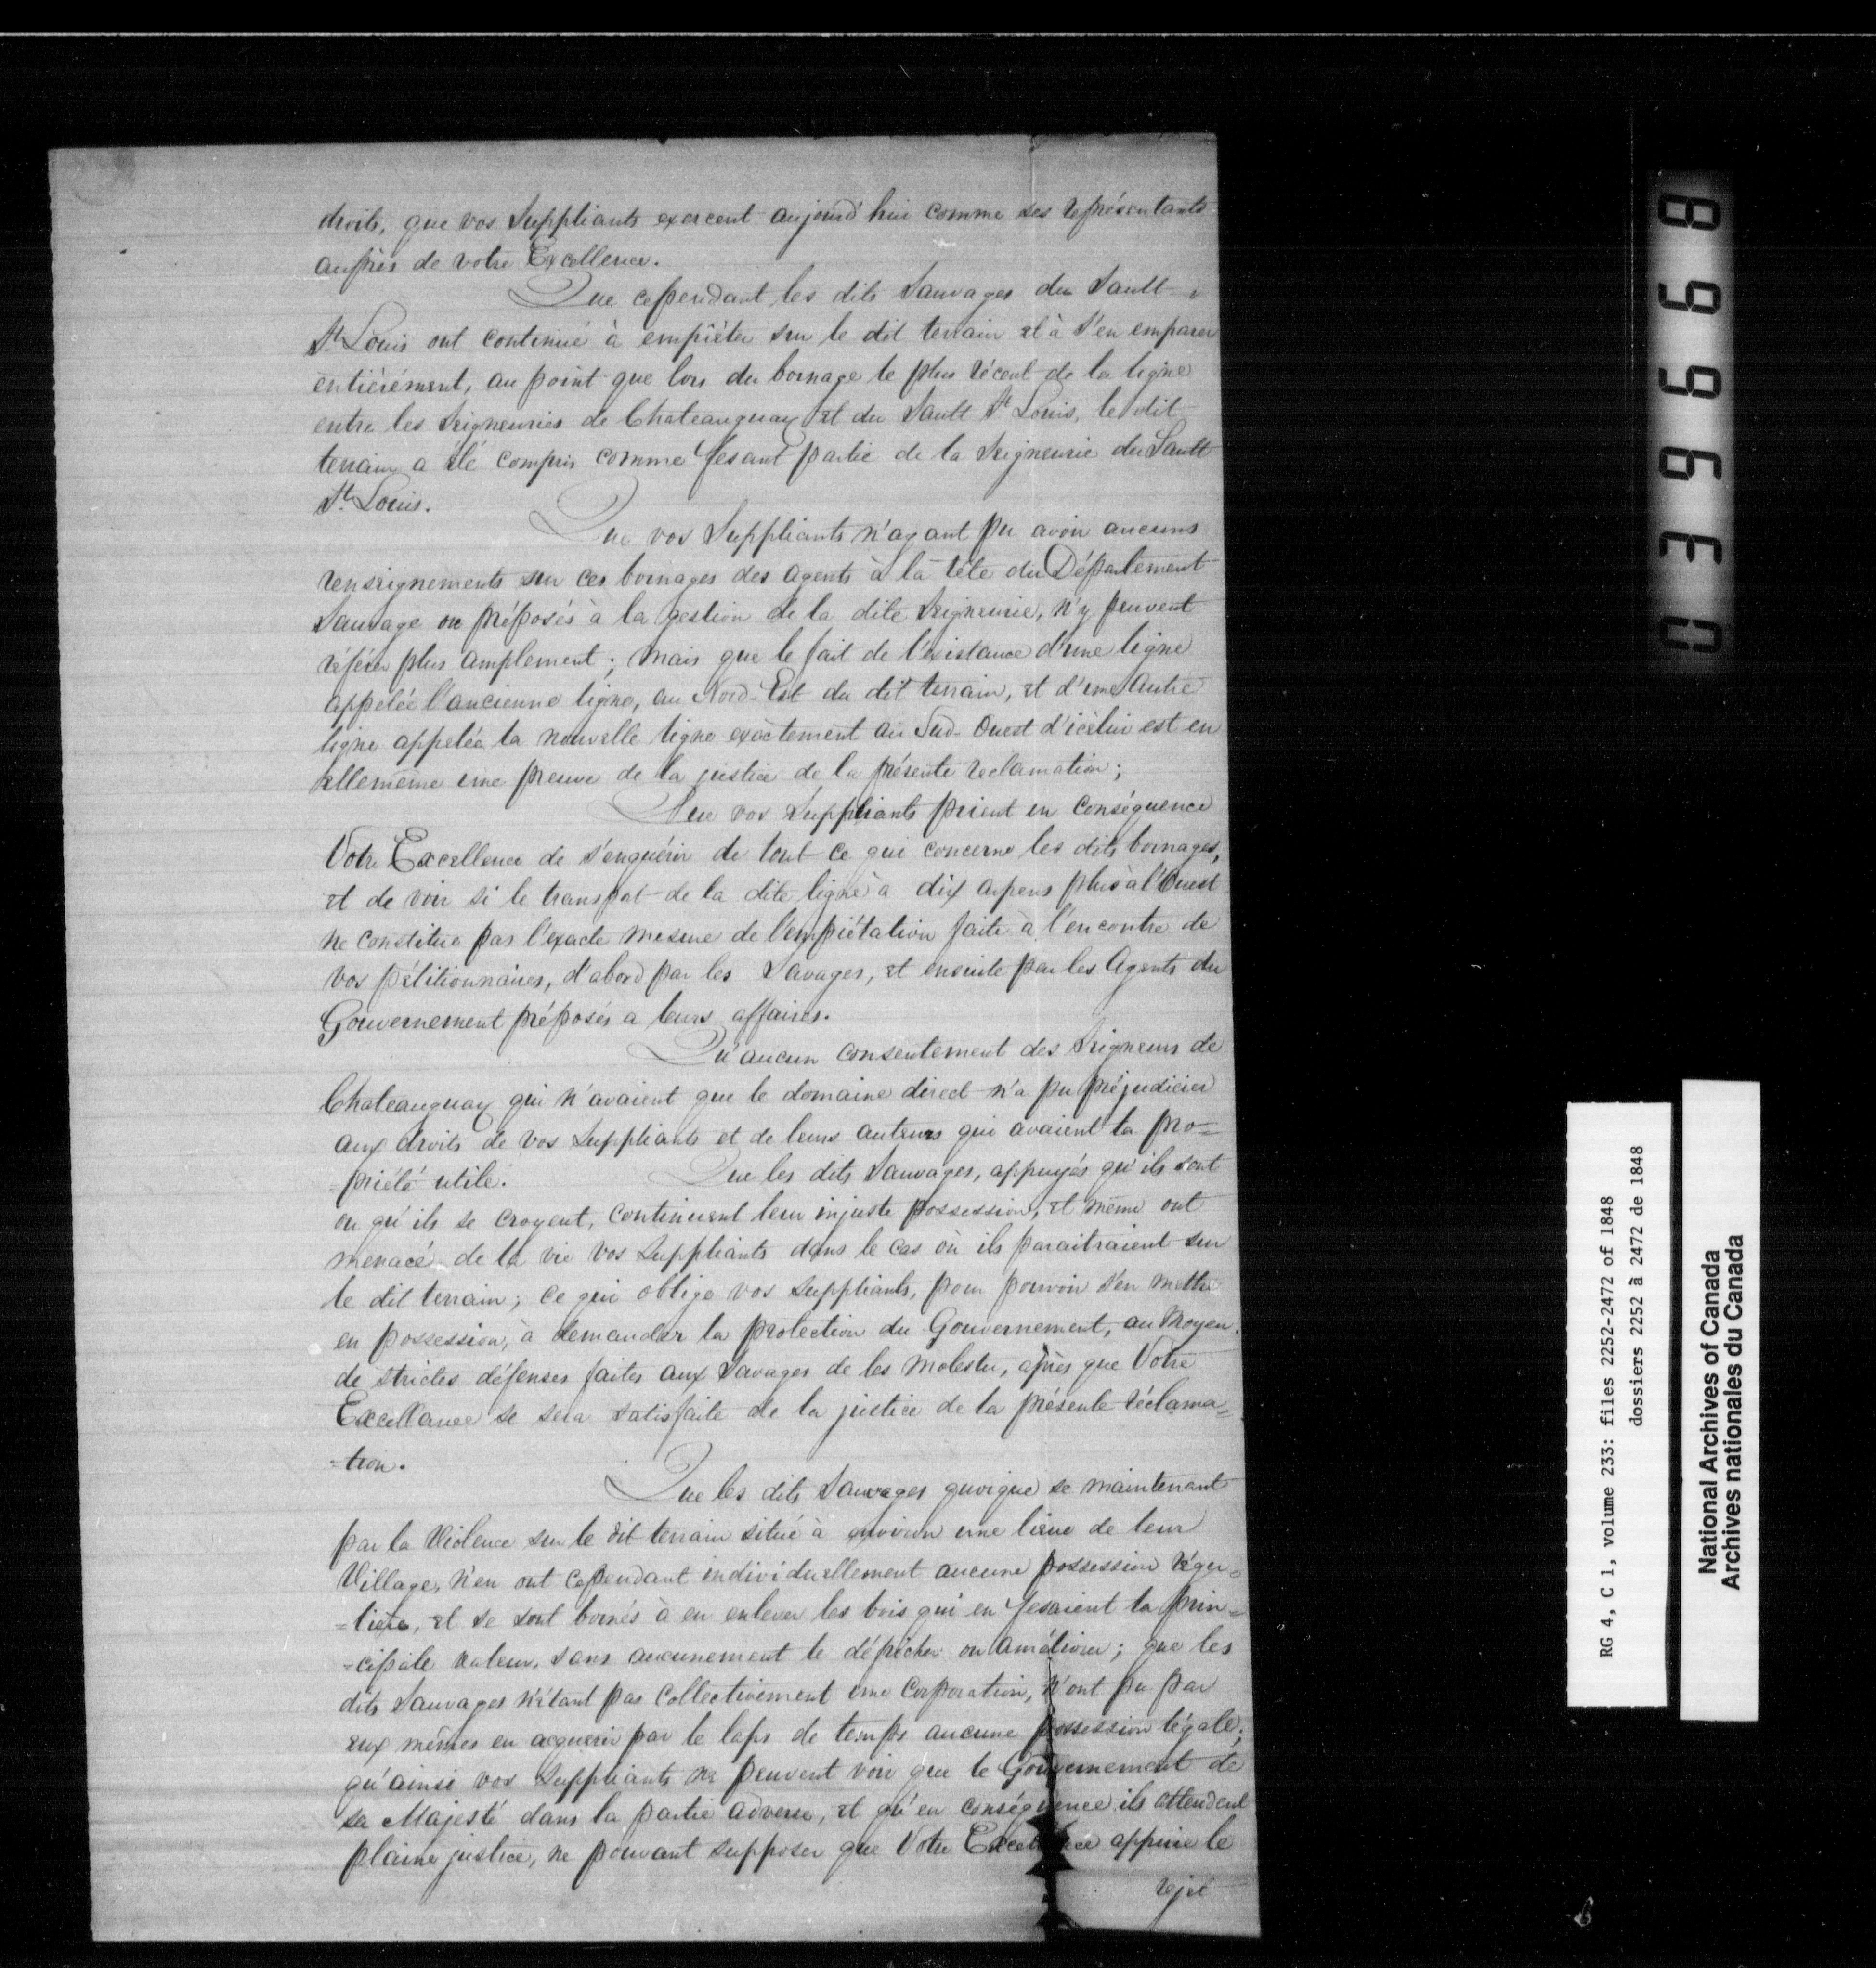 droits, que vos Suppliants exercent aujourd'hui comme ses représentants
auprès de votre Excellence.
Que cependant les dits Sauvages du Sault
St. Louis ont continué à empiéter sur le dit terrain et à s'en emparer
entièrement, au point que lors du bornage le plus récent de la ligne
entre les Seigneuries de Chateauguay et du Sault St Louis, le dit
terrain a été compris comme fesant partie de la Seigneurie du Sault
St. Louis.
Que vos Suppliants n'ayant pu avoir aucuns
renseignements sur ces bornages des agents à la tête du Département
Sauvage ou préposés à la gestion de la dite Seigneurie, n'y peuvent
référer plus amplement; mais que le fait de l'existance d'une ligne
appelée l'ancienne ligne, au Nord-Est du dit terrain, et d'une autre
ligne appelée la nouvelle ligne exactement au Sud-Ouest d'icelui est en
ellemême une preuve de la justice de la présente reclamation;
Que vos Suppliants prient en conséquence
Votre Excellence de s'enquérir de tout ce qui concerne les dits bornages,
et de voir si le transport de la dite ligne à dix arpens plus à l'Ouest
ne constitue pas l'exacte mesure de l'empiétation faite à l'encontre de
vos pétitionnaires, d'abord par les Savages, et ensuite par les Agents du
Gouvernement préposés a leurs affaires.
Qu'aucun consentement des Seigneurs de
Chateauguay qui n'avaient que le domaine direct n'a pu préjudicier
aux droits de vos Suppliants et de leurs auteurs qui avaient la pro=
=priété utile. Que les dits Sauvages, appuyés qu'ils sont
ou qu'ils se croyent, continuent leur injuste possession, et même ont
menacé de la vie vos Suppliants dans le cas où ils paraitraient sur
le dit terrain; ce qui oblige vos suppliants, pour pouvoir s'en mettre
en possession, à demander la protection du Gouvernement, au moyen
de strictes défenses faites aux Savages de les molester, après que Votre
Excellance se sera satisfaite de la justice de la présente réclama=
=tion.
Que les dits Sauvages quoique se maintenant
par la Violence sur le dit terrain situé à environ une lieue de leur
Village, n'en ont cependant individuellement aucune possession régu=
=lière, et se sont bornés à en enlever les bois qui en fesaient la prin=
=cipale valeur, sans aucunement le dépécher ou améliorer; que les
dits Sauvages n'étant pas collectivement une Corporation, n'ont pu par
eux mêmes en acquerir par le laps de temps aucune possession légale;
qu'ainsi vos Suppliants ne peuvent voir que le Gouvernement de
sa Majesté dans la partie adverse, et qu'en conséquence ils attendent
plaine justice, ne pouvant supposer que Votre Excellence appuie le
rejet
039668
RG 4, C 1, volume 233: files 2252-2472 of 1848
dossiers 2252 à 2472 de 1848
National Archives of Canada
Archives nationales du Canada